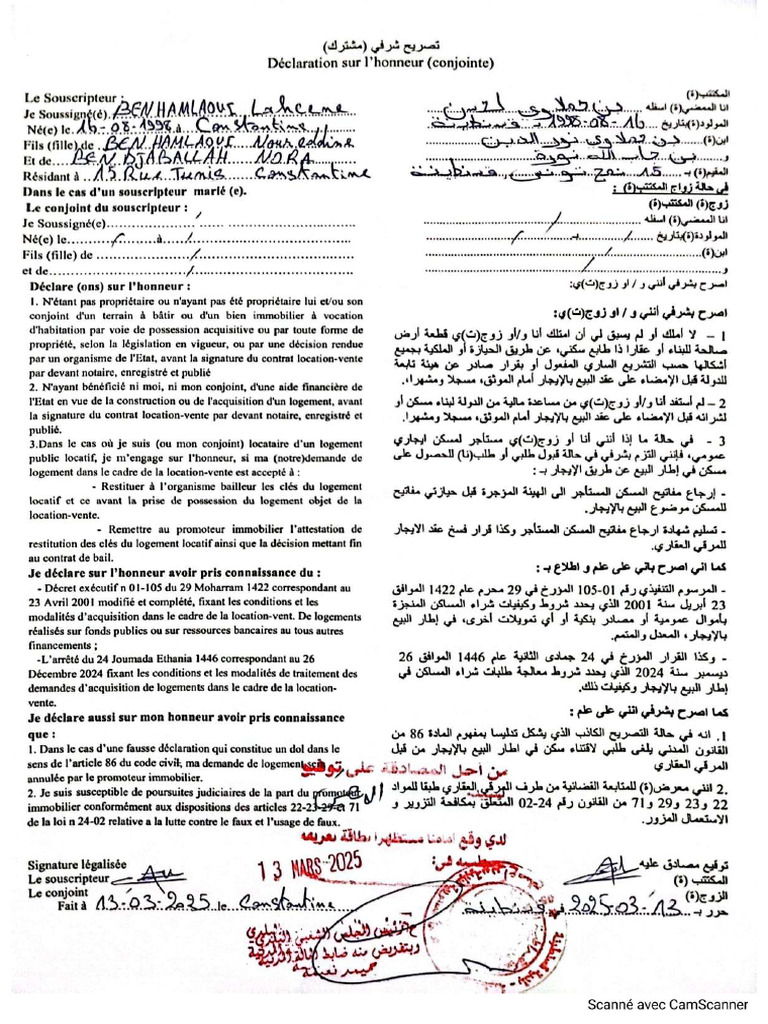 تصريح شرفي (مشترك)
Déclaration sur l'honneur (conjointe)
Le Souscripteur :
Je Soussigné(é). BENHAMLAOUI Lahcene
Né(e) le 16-08-1998 à Constantine
Fils (fille) de BENHAMLAOUI Noureddine
Et de BENDJABALLAH NORA
Résidant à 15 Rue Tunis Constantine
Dans le cas d'un souscripteur marié (e).
Le conjoint du souscripteur :
Je Soussigné(e)........................
Né(e) le..........à........................
Fils (fille) de ........................
et de........................
Déclare (ons) sur l'honneur :
1. N'étant pas propriétaire ou n'ayant pas été propriétaire lui et/ou son
conjoint d'un terrain à bâtir ou d'un bien immobilier à vocation
d'habitation par voie de possession acquisitive ou par toute forme de
propriété, selon la législation en vigueur, ou par une décision rendue
par un organisme de l'Etat, avant la signature du contrat location-vente
par devant notaire, enregistré et publié
2. N'ayant bénéficié ni moi, ni mon conjoint, d'une aide financière de
l'Etat en vue de la construction ou de l'acquisition d'un logement, avant
la signature du contrat location-vente par devant notaire, enregistré et
publié.
3.Dans le cas où je suis (ou mon conjoint) locataire d'un logement
public locatif, je m'engage sur l'honneur, si ma (notre)demande de
logement dans le cadre de la location-vente est accepté à :
- Restituer à l'organisme bailleur les clés du logement
locatif et ce avant la prise de possession du logement objet de la
location-vente.
- Remettre au promoteur immobilier l'attestation de
restitution des clés du logement locatif ainsi que la décision mettant fin
au contrat de bail.
Je déclare sur l'honneur avoir pris connaissance du :
- Décret exécutif n 01-105 du 29 Moharram 1422 correspondant au
23 Avril 2001 modifié et complété, fixant les conditions et les
modalités d'acquisition dans le cadre de la location-vent. De logements
réalisés sur fonds publics ou sur ressources bancaires au tous autres
financements ;
-L'arrêté du 24 Joumada Ethania 1446 correspondant au 26
Décembre 2024 fixant les conditions et les modalités de traitement des
demandes d'acquisition de logements dans le cadre de la location-
vente.
Je déclare aussi sur mon honneur avoir pris connaissance
que :
1. Dans le cas d'une fausse déclaration qui constitue un dol dans le
sens de l'article 86 du code civil; ma demande de logement sera
annulée par le promoteur immobilier.
2. Je suis susceptible de poursuites judiciaires de la part du promoteur
immobilier conformément aux dispositions des articles 22-23-29 et 71
de la loi n 24-02 relative a la lutte contre le faux et l'usage de faux.
Signature légalisée
Le souscripteur
Le conjoint
Fait à 13-03-2025 le Constantine
المكتتب(ة)
انا الممضي(ة) اسفله بن حملاوي لحسن
المولود(ة)بتاريخ 16-08-1998 بـ قسنطينة
ابن(ة) بن حملاوي نور الدين
و بن جاب الله نورة
المقيم(ة) بـ 15 نهج تونس، قسنطينة
في حالة زواج المكتتب(ة) :
زوج(ة) المكتتب(ة)
انا الممضي(ة) اسفله
المولودة(ة)بتاريخ ............ بـ ............
ابن(ة)........................
و........................
اصرح بشرفي أنني و / او زوج(ت)ي:
اصرح بشرفي أنني و / او زوج(ت)ي:
1 – لا أملك أو لم يسبق لي أن امتلك أنا و/أو زوج(ت)ي قطعة أرض
صالحة للبناء أو عقارا ذا طابع سكني، عن طريق الحيازة أو الملكية بجميع
أشكالها حسب التشريع الساري المفعول أو بقرار صادر عن هيئة تابعة
للدولة قبل الإمضاء على عقد البيع بالإيجار أمام الموثق، مسجلا ومشهرا،
2 – لم أستفد أنا و/أو زوج(ت)ي من مساعدة مالية من الدولة لبناء مسكن أو
لشرائه قبل الإمضاء على عقد البيع بالإيجار أمام الموثق، مسجلا ومشهرا.
3 - في حالة ما إذا أنني أنا أو زوج(ت)ي مستأجر لمسكن ايجاري
عمومي، فإنني التزم بشرفي في حالة قبول طلبي أو طلب(نا) للحصول على
مسكن في إطار البيع عن طريق الإيجار بـ :
- إرجاع مفاتيح المسكن المستأجر الى الهيئة المؤجرة قبل حيازتي مفاتيح
للمسكن موضوع البيع بالإيجار.
- تسليم شهادة ارجاع مفاتيح المسكن المستأجر وكذا قرار فسخ عقد الايجار
للمرقي العقاري.
كما اني اصرح باني على علم و اطلاع بـ :
- المرسوم التنفيذي رقم 01-105 المؤرخ في 29 محرم عام 1422 الموافق
23 أبريل سنة 2001 الذي يحدد شروط وكيفيات شراء المساكن المنجزة
بأموال عمومية أو مصادر بنكية أو أي تمويلات أخرى، في إطار البيع
بالإيجار، المعدل والمتمم.
- وكذا القرار المؤرخ في 24 جمادى الثانية عام 1446 الموافق 26
ديسمبر سنة 2024 الذي يحدد شروط معالجة طلبات شراء المساكن في
إطار البيع بالإيجار وكيفيات ذلك.
كما اصرح بشرفي انني على علم :
1. انه في حالة التصريح الكاذب الذي يشكل تدليسا بمفهوم المادة 86 من
القانون المدني يلغى طلبي لاقتناء سكن في اطار البيع بالإيجار من قبل
المرقي العقاري
2. انني معرض(ة) للمتابعة القضائية من طرف المرقي العقاري طبقا للمواد
22 و23 و29 و71 من القانون رقم 24-02 المتعلق بمكافحة التزوير و
الاستعمال المزور.
توقيع مصادق عليه
المكتتب (ة)
الزوج(ة)
حرر بـ 13-03-2025 في قسنطينة
من أجل المصادقة على توقيع
لدي وقع امامنا مستظهرا بطاقة تعريفه
13 MARS 2025
رئيس المجلس الشعبي البلدي
وبتفويض منه ضابط الحالة المدنية
Scanné avec CamScanner